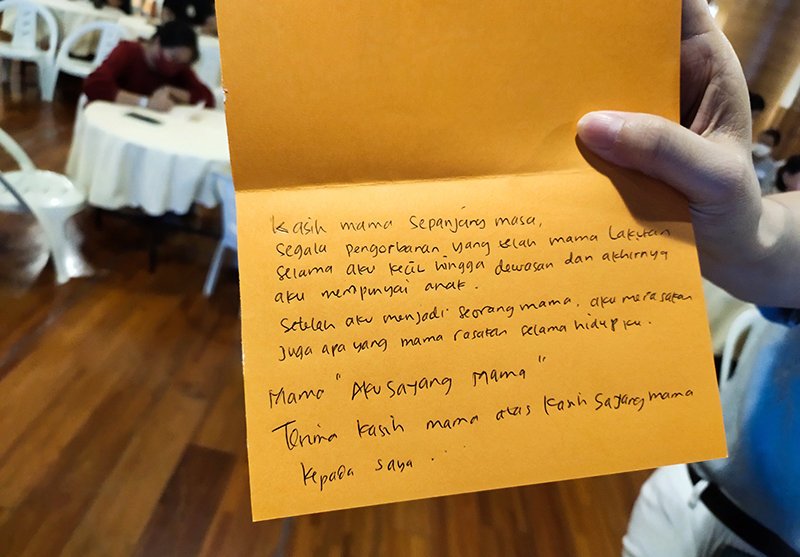 Kasih mama sepanjang masa,
segala pengorbanan yang telah mama lakukan
selama aku kecil hingga dewasan dan akhirnya
aku mempunyai anak.
Setelah aku menjadi seorang mama, aku merasakan
juga apa yang mama rasakan selama hidupku.
Mama "Aku sayang Mama"
Terima kasih mama atas kasih sayang mama
kepada saya...